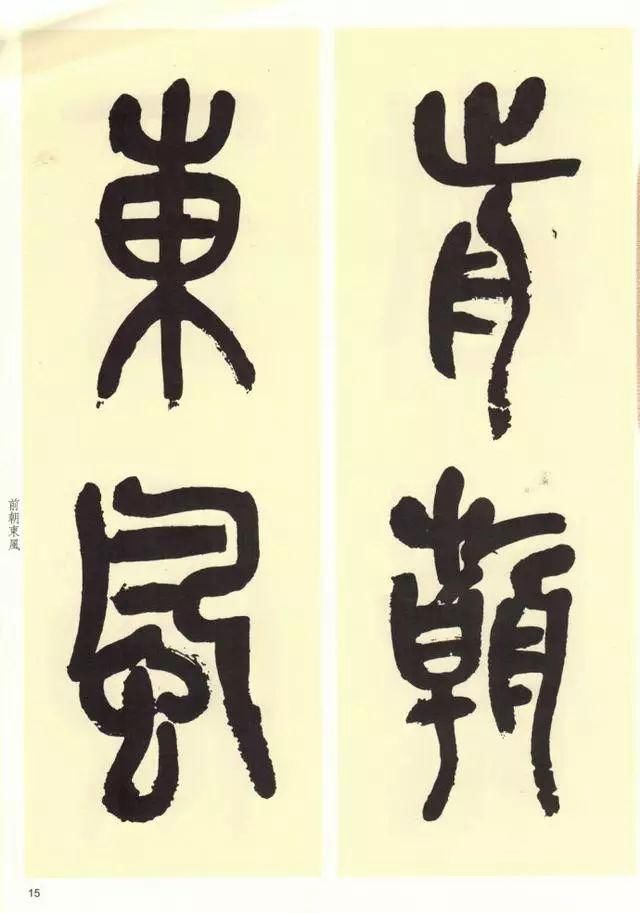 前朝
東風
前朝東風
15